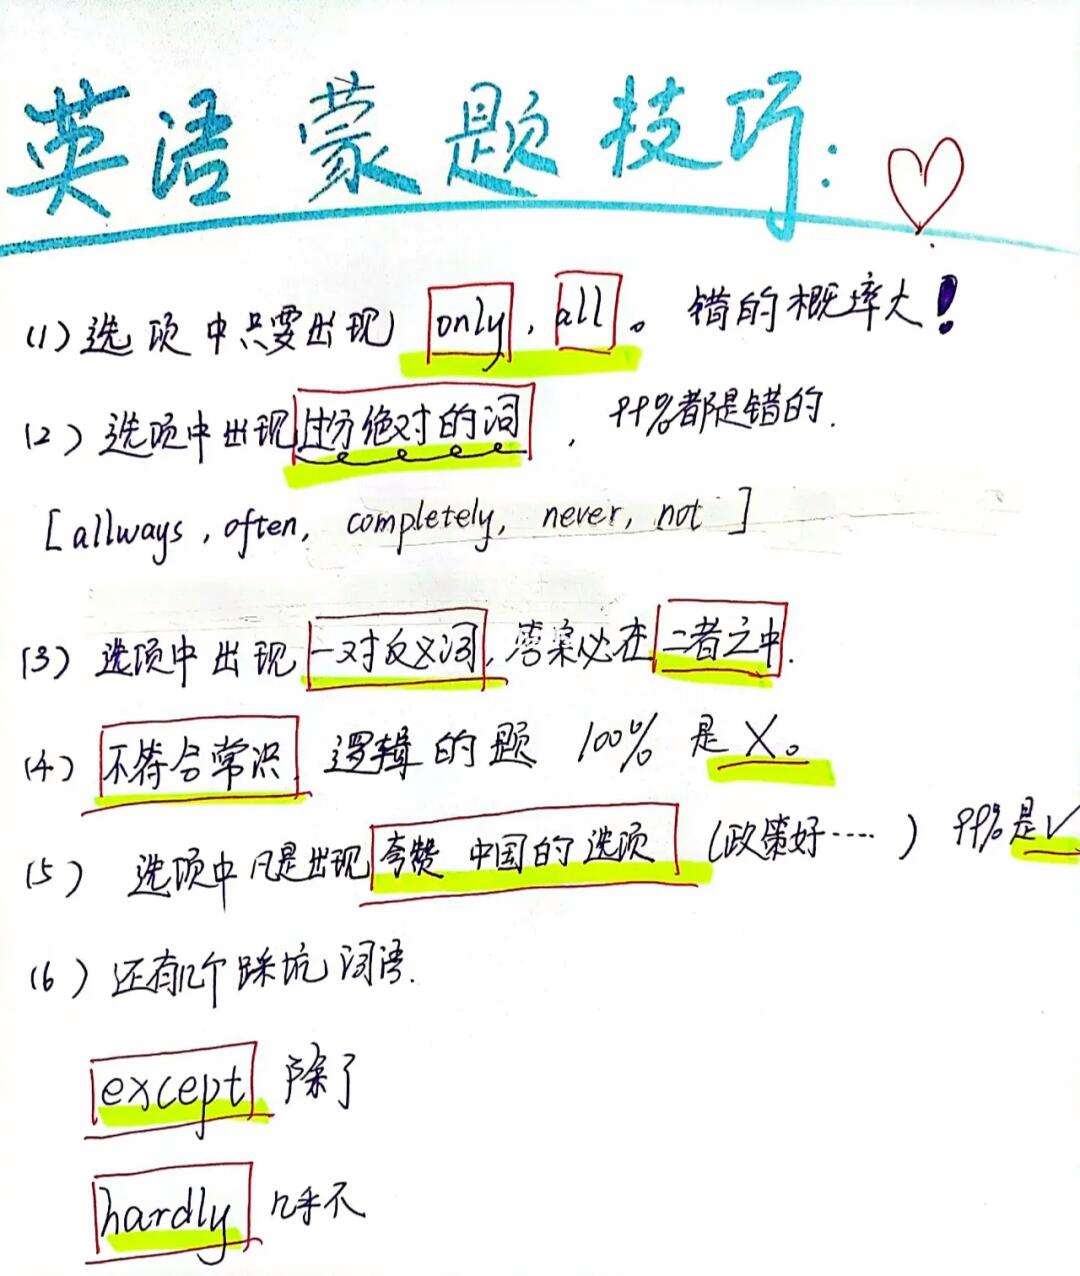 英语蒙题技巧:
(1) 选项中只要出现 only, all。错的概率大!
(2) 选项中出现过分绝对的词, 99%都是错的.
[allways, often, completely, never, not]
(3) 选项中出现一对反义词, 答案必在二者之中.
(4) 不符合常识, 逻辑的题 100% 是 X。
(5) 选项中凡是出现夸赞中国的选项 (政策好····) 99%是✓
(6) 还有几个踩坑词语.
except 除了
hardly 几乎不